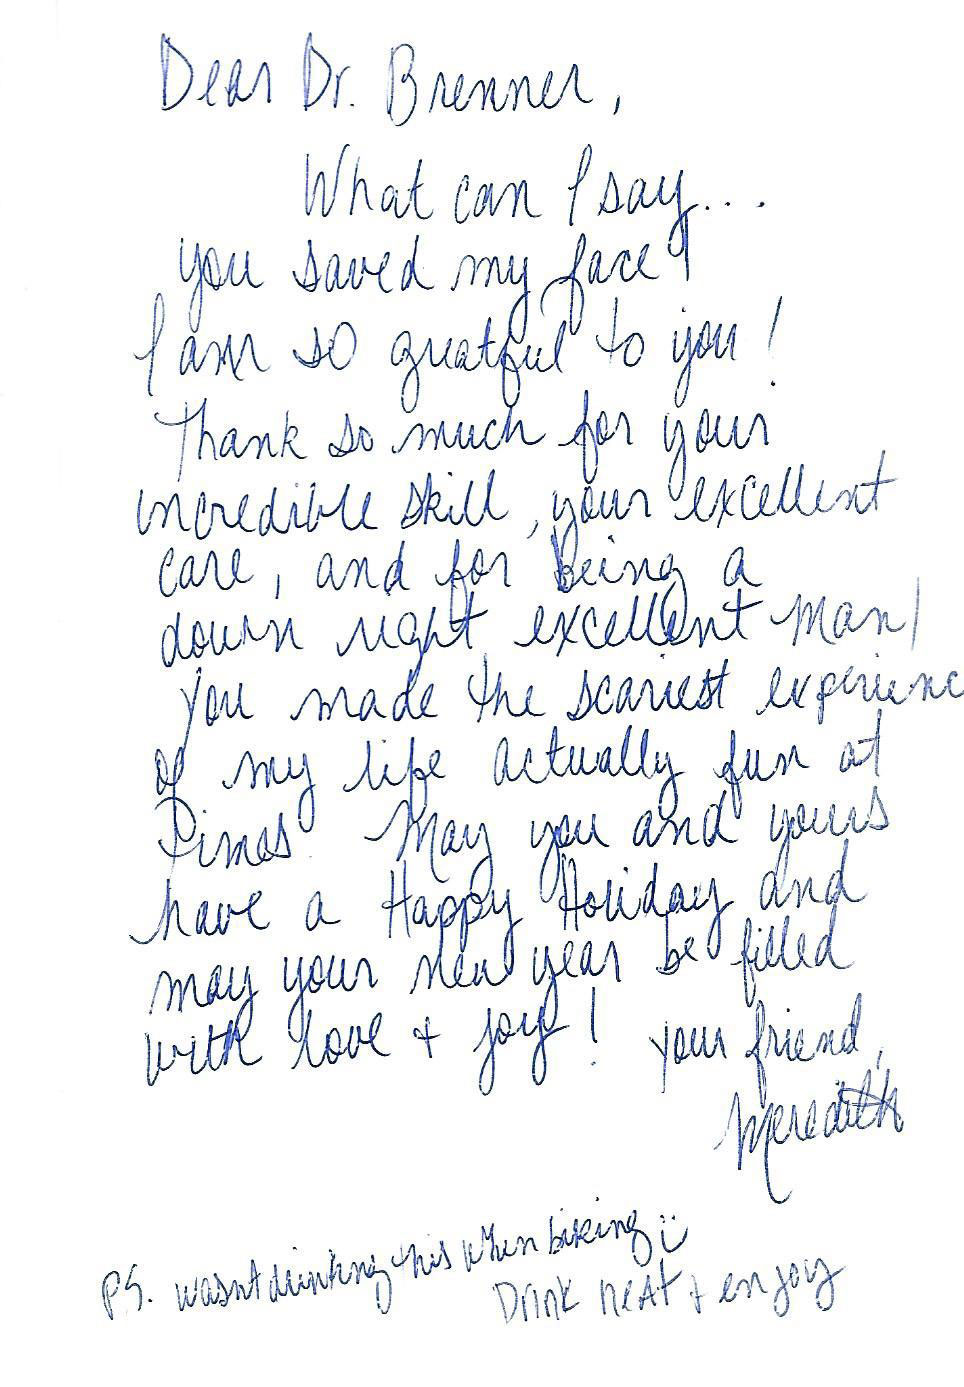 Dear Dr. Brenner,
What can I say...
you saved my face!
I am so greatful to you!
Thank so much for your
incredible skill, your excellent
care, and for being a
down right excellent man!
You made the scariest experienc
of my life actually fun at
Times. May you and yours
have a Happy Holiday and
may your new year be filled
with love + joy! Your friend,
Meredith
PS. wasnt drinking this when biking :)
Drink neat + enjoy